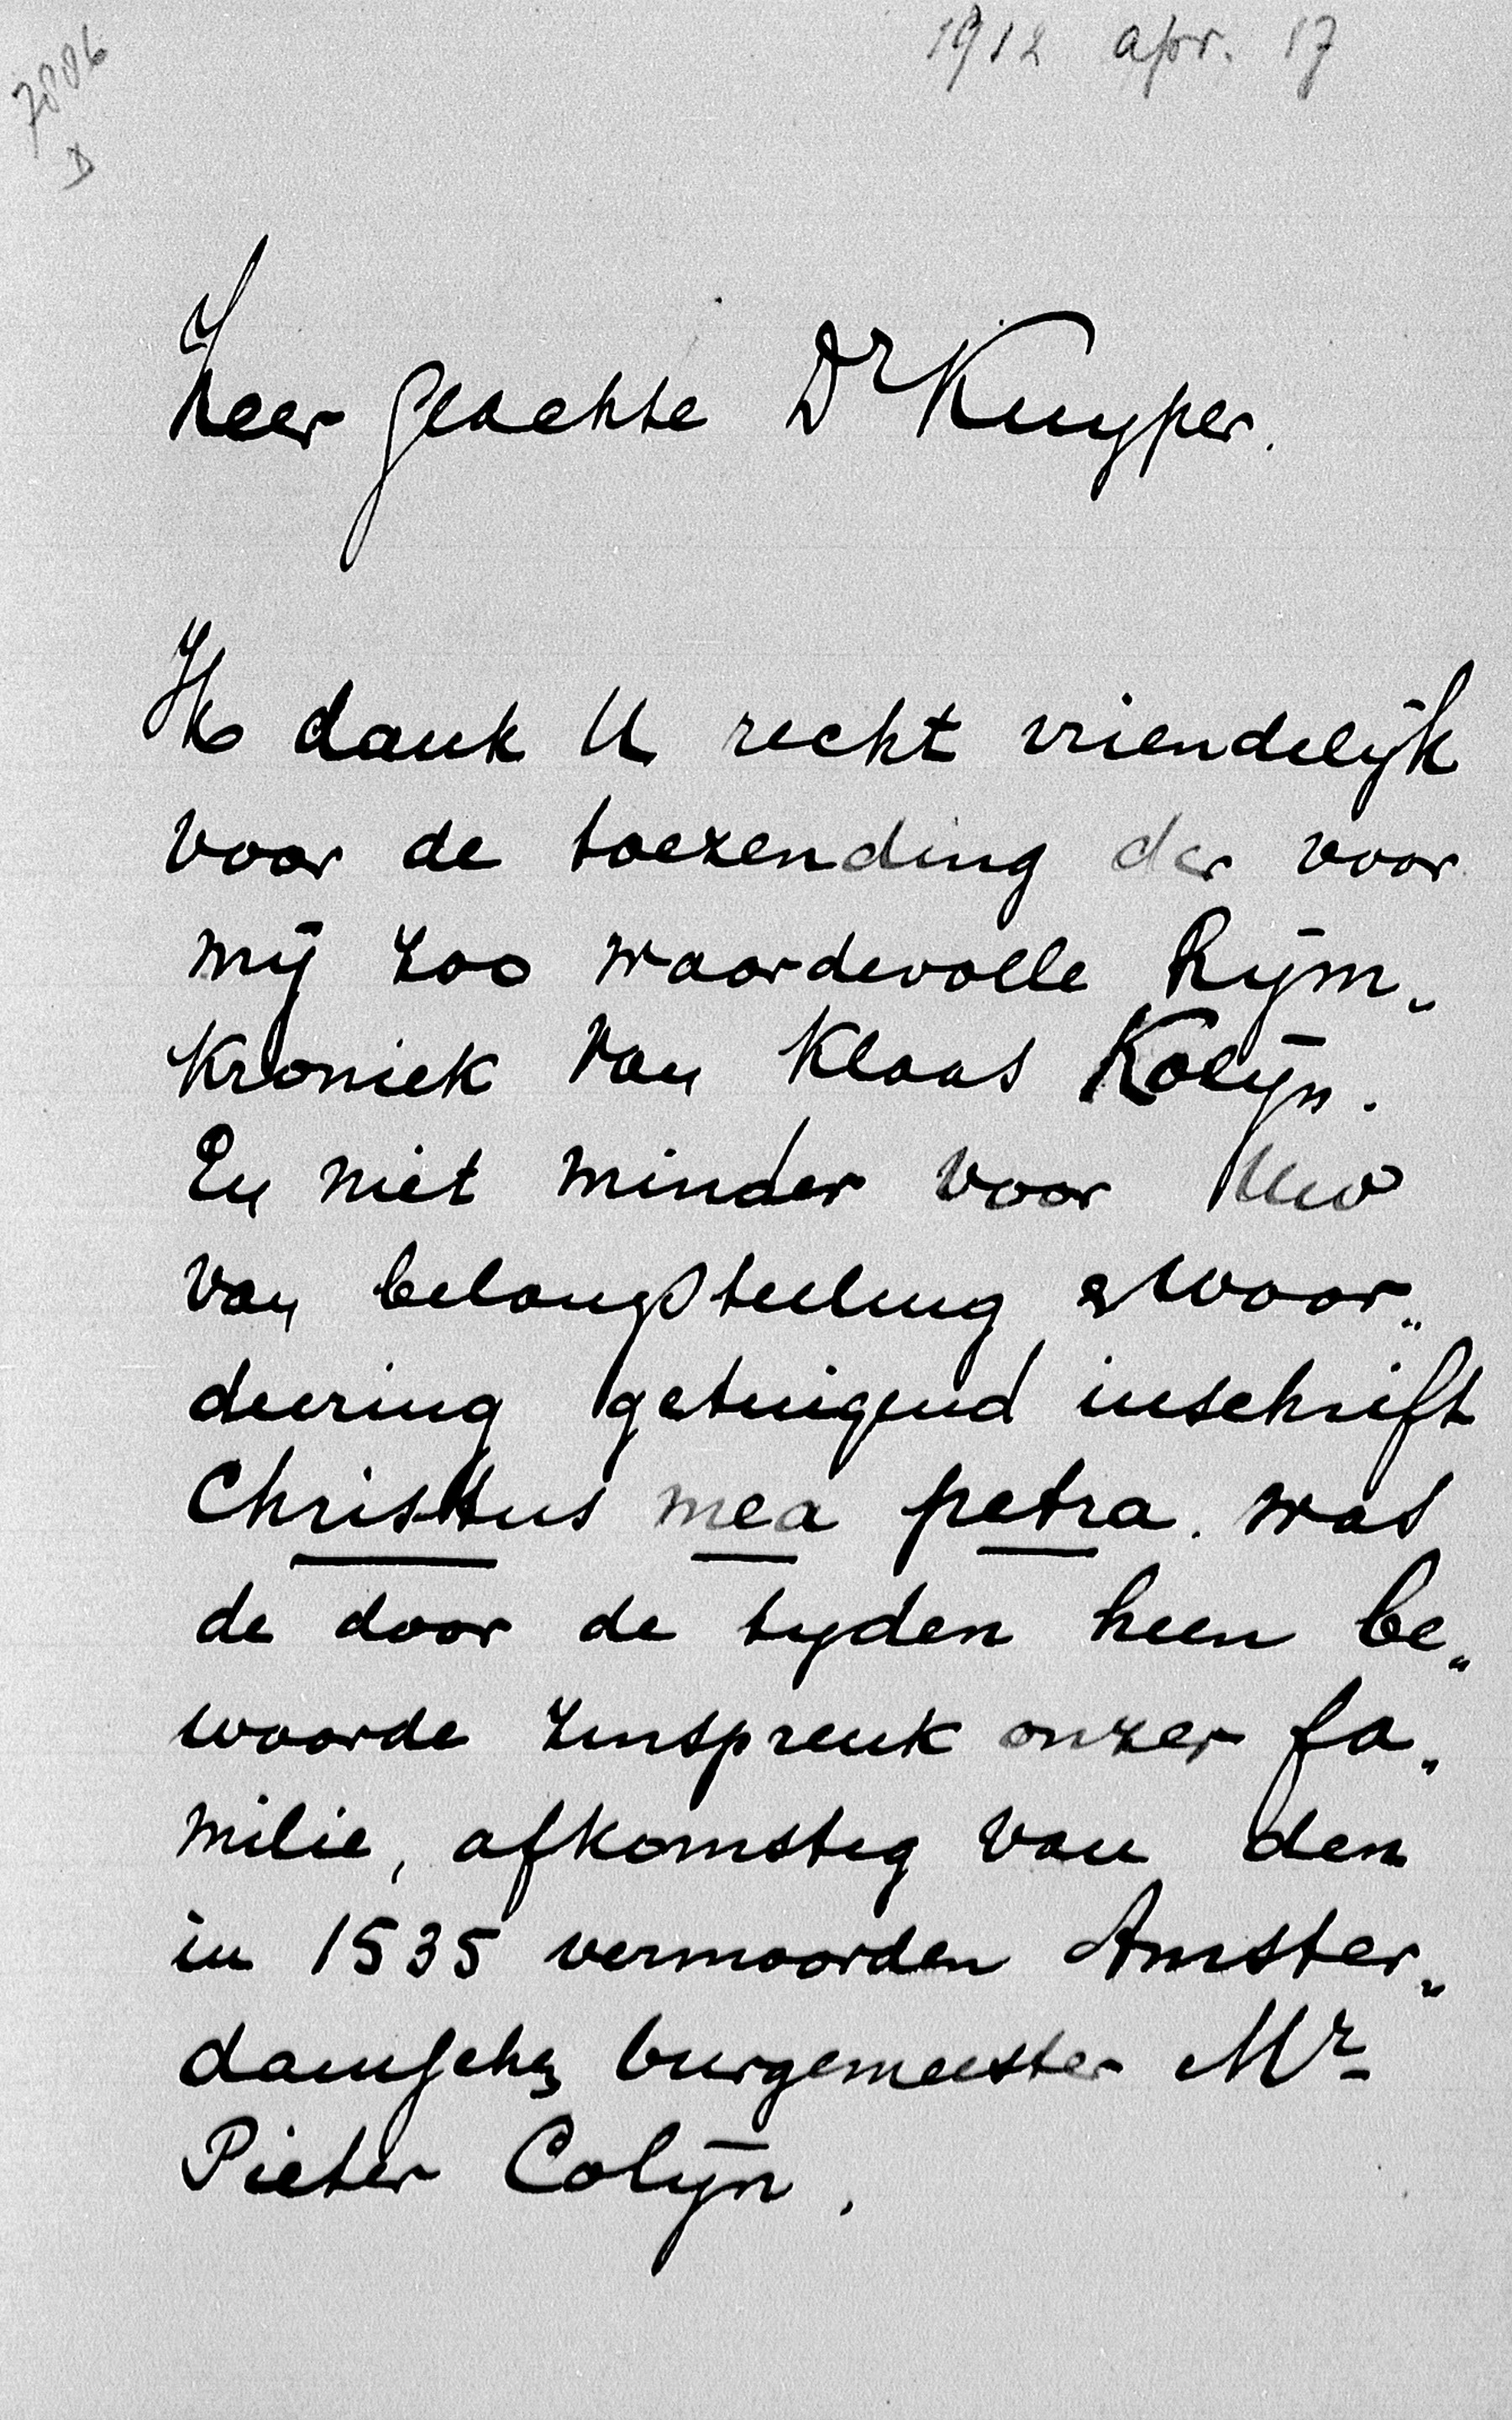 1912 apr. 17
7886
D
Zeer geachte Dr Kuyper.
Ik dank U recht vriendelijk
voor de toezending der voor
mij zoo waardevolle Rijm„
kroniek van Klaas Kolijn.
En niet minder voor Uw
van belangstelling & waar„
deering getuigend inschrift
Christus mea petra. was
de door de tyden heen be„
waarde zinspreuk onzer fa„
milie, afkomstig van den
in 1535 vermoorden Amster„
damschen burgemeester Mr
Pieter Colijn.